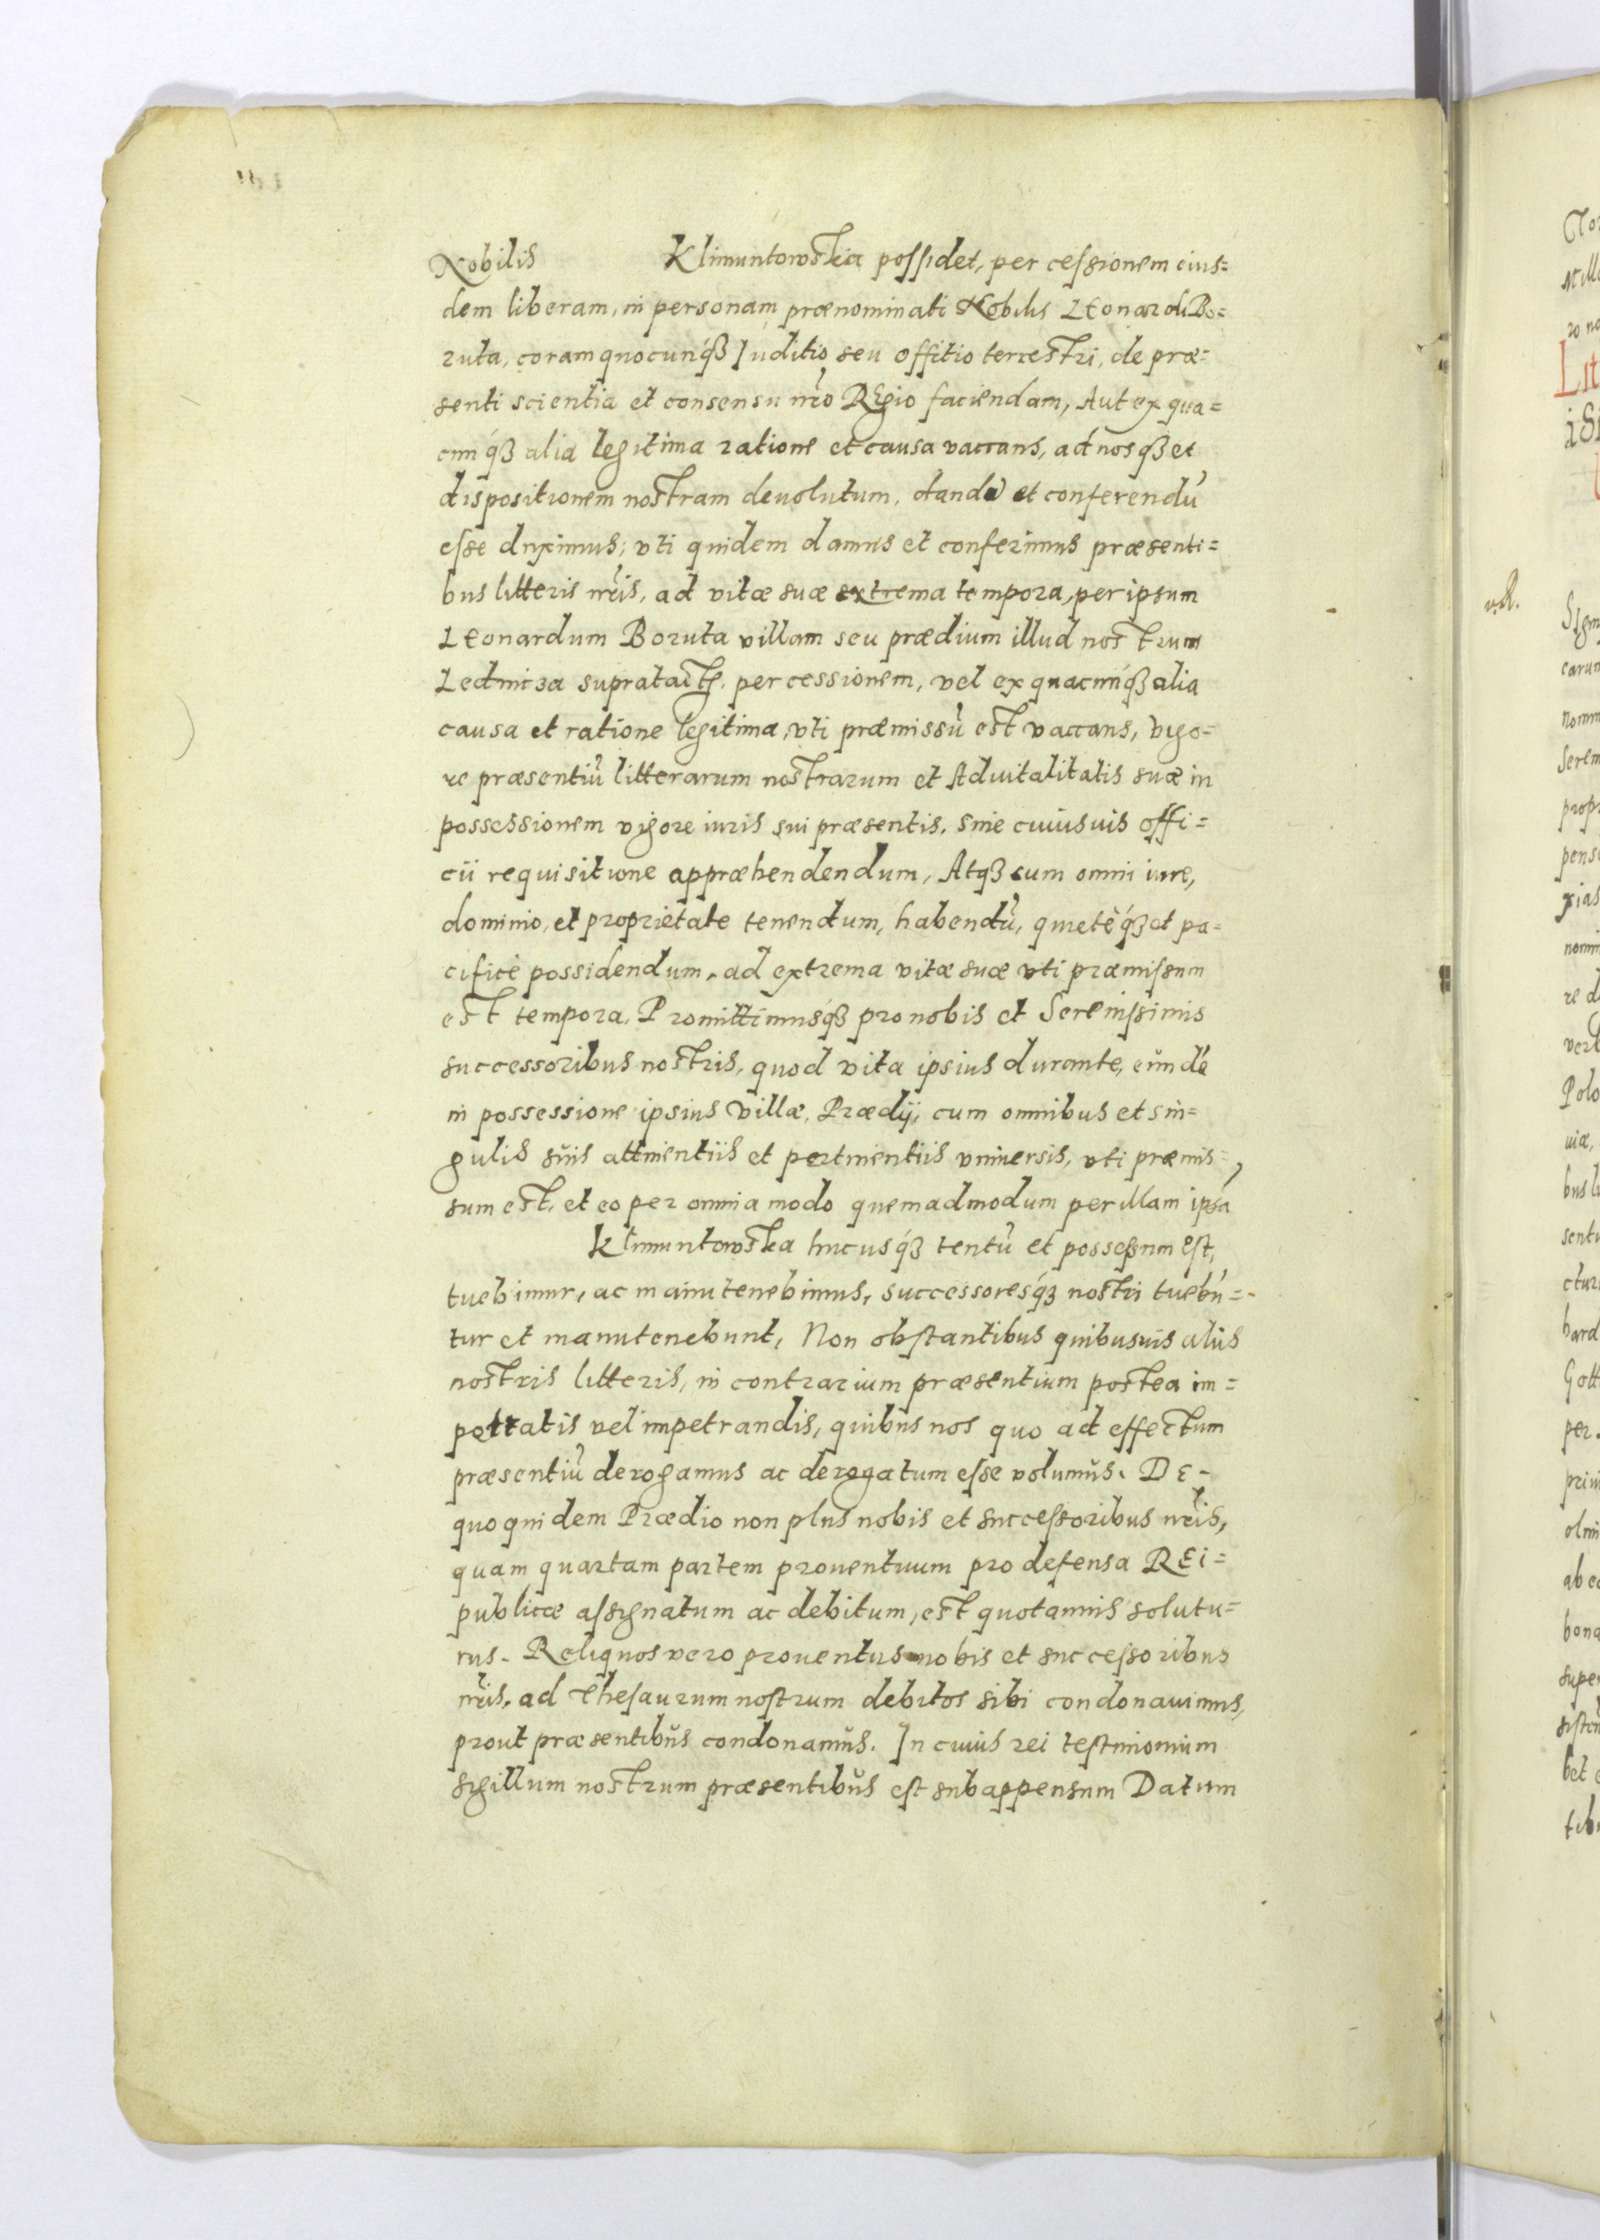 Nobilis Klimuntowska possidet, per cessionem eius=
dem liberam, in personam prænominati Nobilis Leonardi Bo=
ruta, coram quocunq́ꝫ Juditio seu offitio terrestri, de præ=
senti scientia et consensu nr̃o Regio faciendam, Aut ex qua=
cunq́ꝫ alia legitima ratione et causa vaccans, ad nosqꝫ et
dispositionem nostram deuolutum, dandũ et conferendũ
esse duximus; vti quidem damus et conferimus præsenti=
bus litteris nr̃is, ad vitæ suæ extrema tempora, per ipsum
Leonardum Boruta villam seu prædium illud nostrum
Lednicza per cessionem, vel ex quacunq́ꝫ alia
causa et ratione legitima, vti præmissũ est vaccans, vigo=
re præsentiũ litterarum nostrarum et Aduitalitatis suæ in
possessionem vigore iuris sui præsentis, sine cuiusuis offi=
cii requisitione appræhendendum, Atqꝫ cum omni iure,
dominio, et proprietate tenendum, habendũ, quietèq́ꝫ et pa=
cificè possidendum, ad extrema vitæ suæ vti præmissum
est tempora. Promittimusq́ꝫ pro nobis et Serenissimis
successoribus nostris, quod vita ipsius durante, eundẽ
in possessione ipsius Villæ, Prædij, cum omnibus et sin=
gulis suis attinentiis et pertinentiis vniuersis, vti præmis=
sum est, et eo per omnia modo quemadmodum per illam ipsã
Klimuntowska hucusq́ꝫ tentũ et possessum est,
tuebimur, ac manutenebimus, successoresq́ꝫ nostri tuebũ=
tur et manutenebunt, Non obstantibus quibusuis aliis
nostris litteris, in contrarium præsentium postea im=
petratis vel impetrandis, quibus nos quo ad effectum
præsentiũ derogamus ac derogatum esse volumus. De
quo quidem Prædio non plus nobis et successoribus nr̃is,
quam quartam partem prouentuum pro defensa Rei=
publicæ assignatum ac debitum, est quotannis solutu=
rus. Reliquos vero prouentus nobis et successoribus
nr̃is, ad thesaurum nostrum debitos sibi condonauimus,
prout præsentibus condonamus. In cuius rei testimonium
sigillum nostrum præsentibus est subappensum Datum